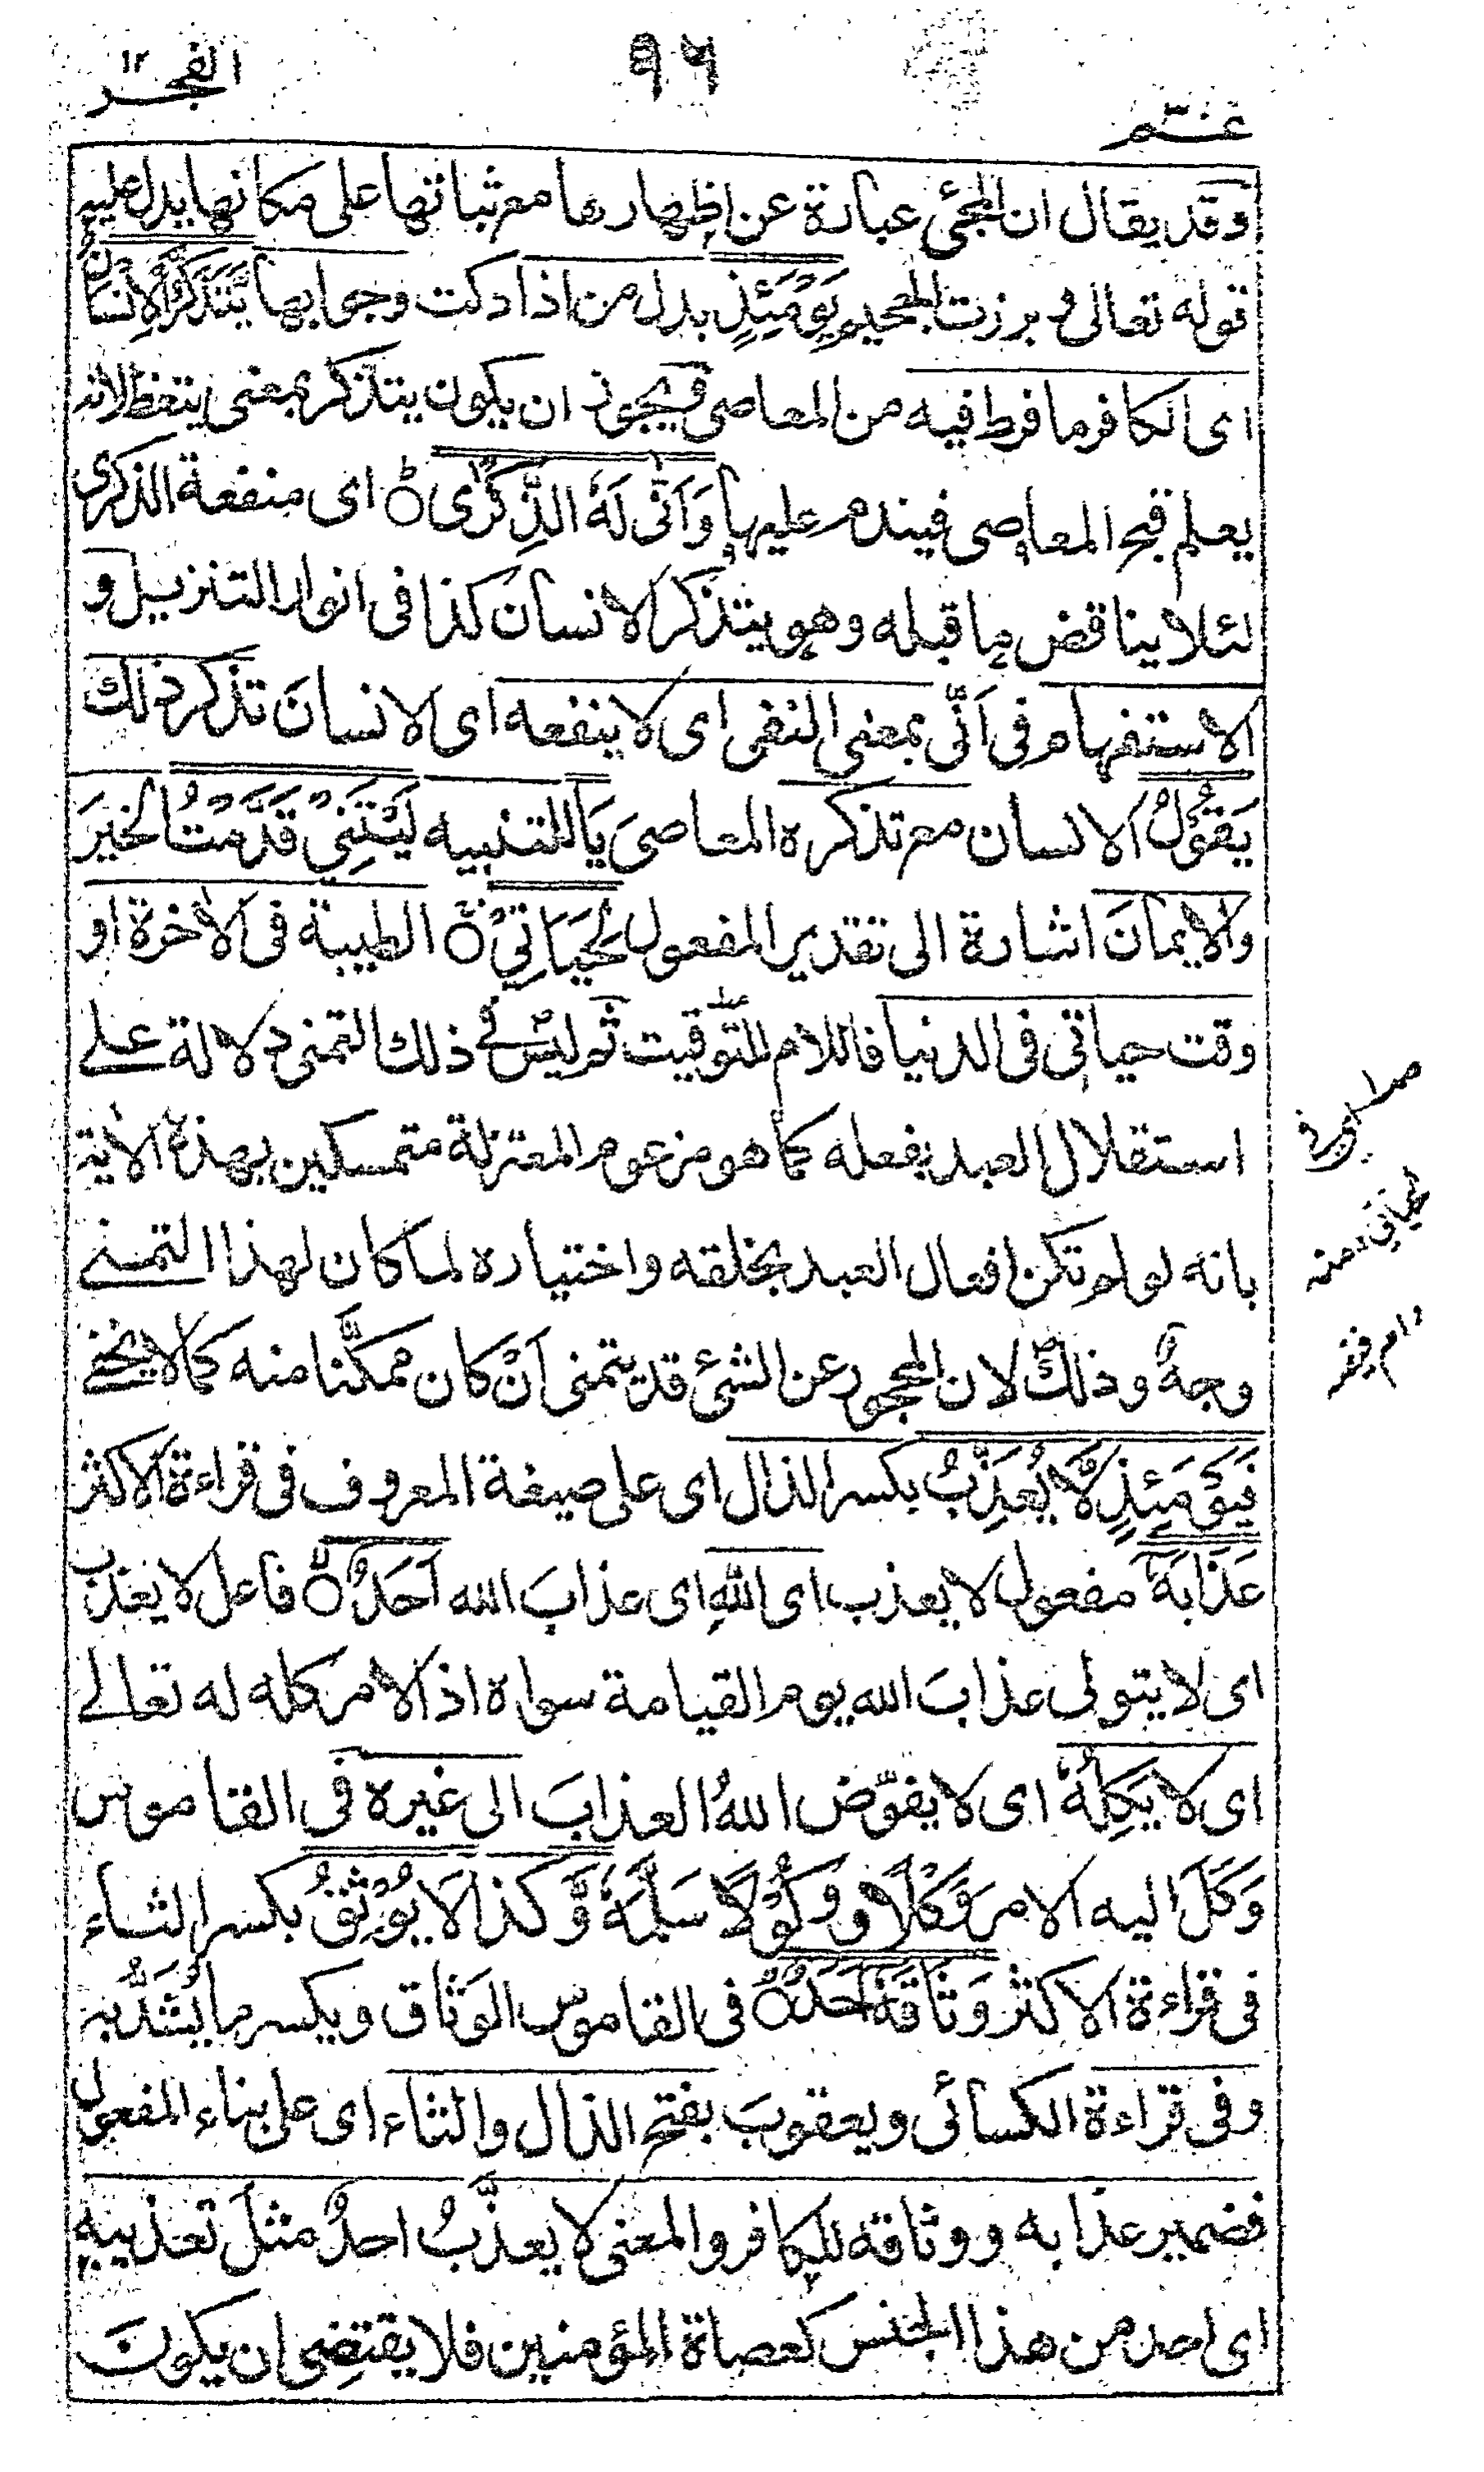 الفجر ١٢
٩٦
عمّ
وقد يقال ان المجئ عبارة عن اظهارها مع ثباتها على مكانها يدل عليه
قوله تعالى وبرزت الجحيم يَوْمَئِذٍ بدل من اذا دكت وجوابها يَتَذَكَّرُ الْاِنْسَانُ
اى الكافر ما فرط فيه من المعاصى ويجوز ان يكون يتذكر بمعنى يتعظ لانه
يعلم قبح المعاصى فيندم عليها وَاَنّٰى لَهُ الذِّكْرٰى ○ اى منفعة الذكرى
لئلا يناقض ما قبله وهو يتذكر الانسان كذا فى انوار التنزيل و
الاستفهام فى اَنّٰى بمعنى النفى اى لا ينفعه اى الانسانَ تذكر ذلك
يَقُوْلُ الانسان مع تذكره المعاصىَ يَا للتنبيه لَيْتَنِيْ قَدَّمْتُ الخيرَ
والايمانَ اشارة الى تقدير المفعول لِحَيَاتِيْ ○ الطيبة فى الاخرة او
وقت حياتى فى الدنيا فاللام للتوقيت ثم ليس في ذلك التمنى دلالة على
استقلال العبد بفعله كما هو مزعوم المعتزلة متمسكين بهذه الاٰية
بانه لو لم تكن افعال العبد بخلقه واختياره لما كان لهذا التمنے
وجهٌ وذلك لان المحجور عن الشئ قد يتمنى اَنْ كان ممكَّنا منه كما لا يخفے
فَيَوْمَئِذٍ لَّا يُعَذِّبُ بكسر الذال اى على صيغة المعروف فى قراءة الاكثر
عَذَابَهٗ مفعول لا يعذب اى اللهِ اى عذابَ الله اَحَدٌ ○ فاعل لا يعذب
اى لا يتولى عذابَ الله يوم القيامة سواه اذ الامر كله له تعالے
اى لا يَكِلُهٗ اى لا يفوّض اللهُ العذابَ الى غيره فى القاموس
وَكَلَ اليه الامر وَكْلًا ووُكُوْلًا سَلَّمَهٗ وَّكذا لَا يُوْثِقُ بكسر الثاء
فى قراءة الاكثر وَثَاقَهٗ اَحَدٌ ○ فى القاموس الوَثاق ويكسر ما يُشَدُّ به
وفى قراءة الكسائى ويعقوبَ بفتح الذال والثاء اى على بناء المفعول
فضمير عذابه ووثاقه للكافر والمعنى لا يعذَّبُ احدٌ مثلَ تعذيبهٖ
اى احد من هذا الجنس كعصاة المؤمنين فلا يقتضى ان يكونَ
لحياتى منه